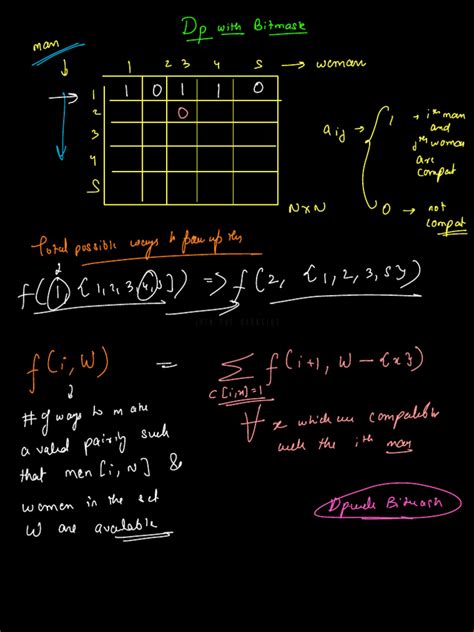 Dp with Bitmask
man
1 2 3 4 5 → woman
1 1 0 1 1 0
2 0
3
4
5
NxN
aij → 1 → ith man
and
jth woman
are
compat
0 → not
compat
Total possible ways to pair up this
f(1, {1,2,3,4,5}) ⇒ f(2, {1,2,3,5})
f(i, W) = Σ f(i+1, W - {x})
C[i,x]=1
# of ways to make
a valid pairing such
that men [i, N] &
women in the set
W are available
∀ x which are compatible
with the ith man
Dp with Bitmask